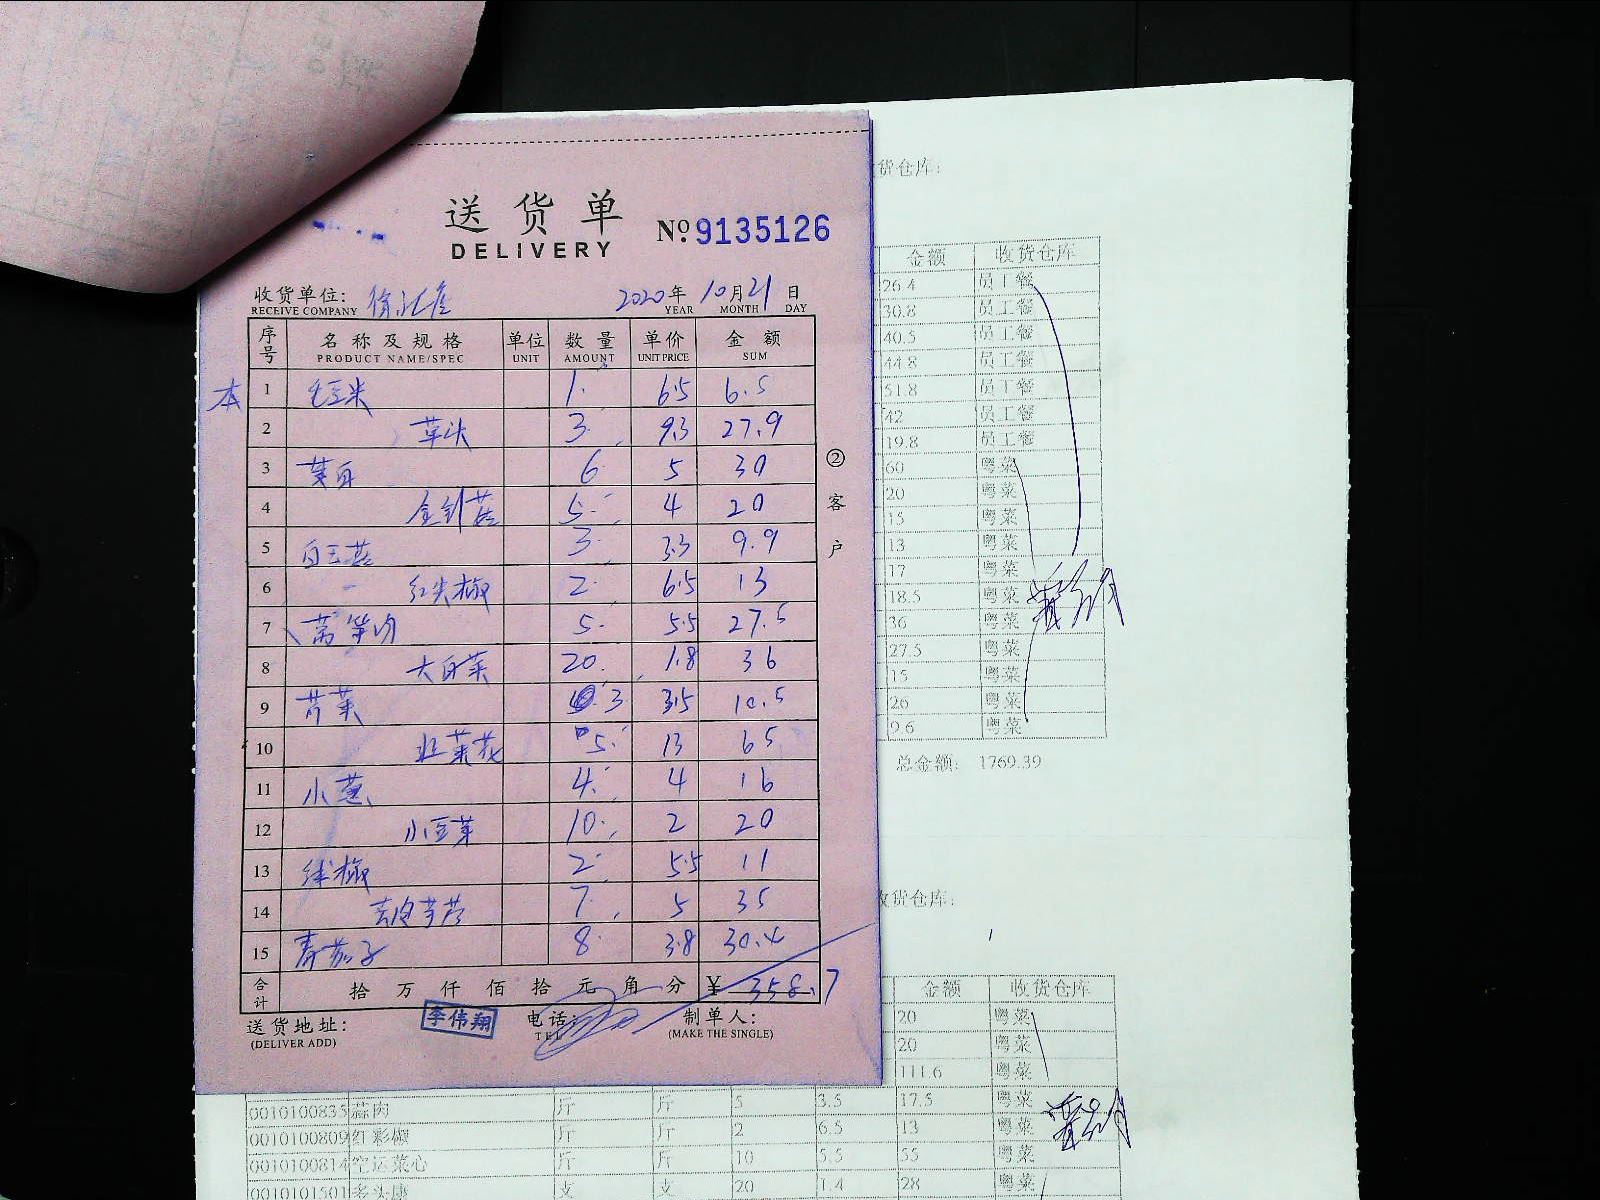 送货单
DELIVERY
No. 9135126
收货单位: 徐汇店 2020年 10月 21日
RECEIVE COMPANY YEAR MONTH DAY
序号 名称及规格 单位 数量 单价 金额
PRODUCT NAME/SPEC UNIT AMOUNT UNIT PRICE SUM
本
1 毛豆米 1. 6.5 6.5
2 草头 3 9.3 27.9
3 茭白 6 5 30
4 金针菇 5 4 20
5 白玉菇 3 3.3 9.9
6 红尖椒 2 6.5 13
7 莴笋肉 5 5.5 27.5
8 大白菜 20 1.8 36
9 芹菜 3 3.5 10.5
10 韭菜花 5 13 65
11 小葱 4 4 16
12 小豆芽 10 2 20
13 线椒 2 5.5 11
14 去皮芋艿 7 5 35
15 青茄子 8 3.8 30.4
合计 拾万仟佰拾元角分 ¥ 358.7
② 客户
送货地址: 李伟翔 电话: 制单人:
(DELIVER ADD) TEL (MAKE THE SINGLE)
货仓库:
金额 收货仓库
26.4 员工餐
30.8 员工餐
40.5 员工餐
44.8 员工餐
51.8 员工餐
42 员工餐
19.8 员工餐
60 粤菜
20 粤菜
15 粤菜
13 粤菜
17 粤菜
18.5 粤菜
36 粤菜
27.5 粤菜
15 粤菜
26 粤菜
9.6 粤菜
总金额: 1769.39
收货仓库:
金额 收货仓库
20 粤菜
20 粤菜
111.6 粤菜
0010100835 蒜肉 斤 斤 5 3.5 17.5 粤菜
0010100809 红彩椒 斤 斤 2 6.5 13 粤菜
0010100814 空运菜心 斤 斤 10 5.5 55 粤菜
0010101501 支 支 20 1.4 28 粤菜